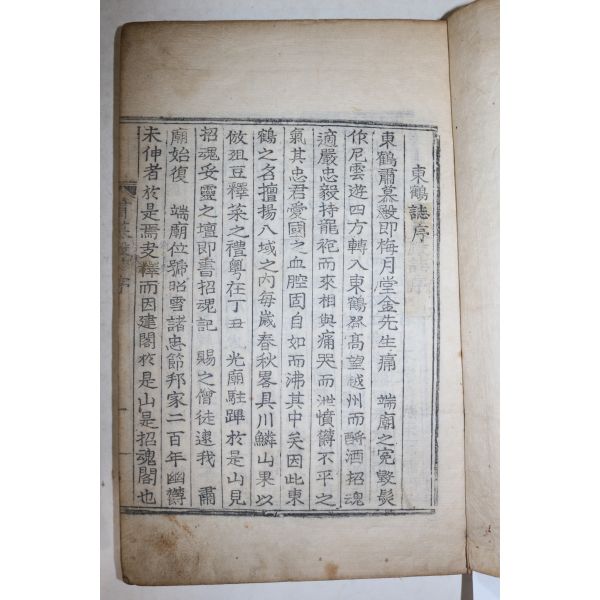 東鶴誌序
東鶴肅慕殿即梅月堂金先生痛　端廟之冤毀髮
作尼雲遊四方轉入東鶴登高望越州而酹酒招魂
適嚴忠毅持龍袍而來相與痛哭而泄憤鬱不平之
氣其忠君愛國之血腔固自如而沸其中矣因此東
鶴之名擅揚八域之內每歲春秋畧具川鱗山果以
倣俎豆釋菜之禮粵在丁丑　光廟駐蹕於是山見
招魂妥靈之壇即書招魂記　賜之僧徒逮我　肅
廟始復　端廟位號昭雪諸忠節邦家二百年幽鬱
未伸者於是焉夬釋而因建閣於是山是招魂閣也